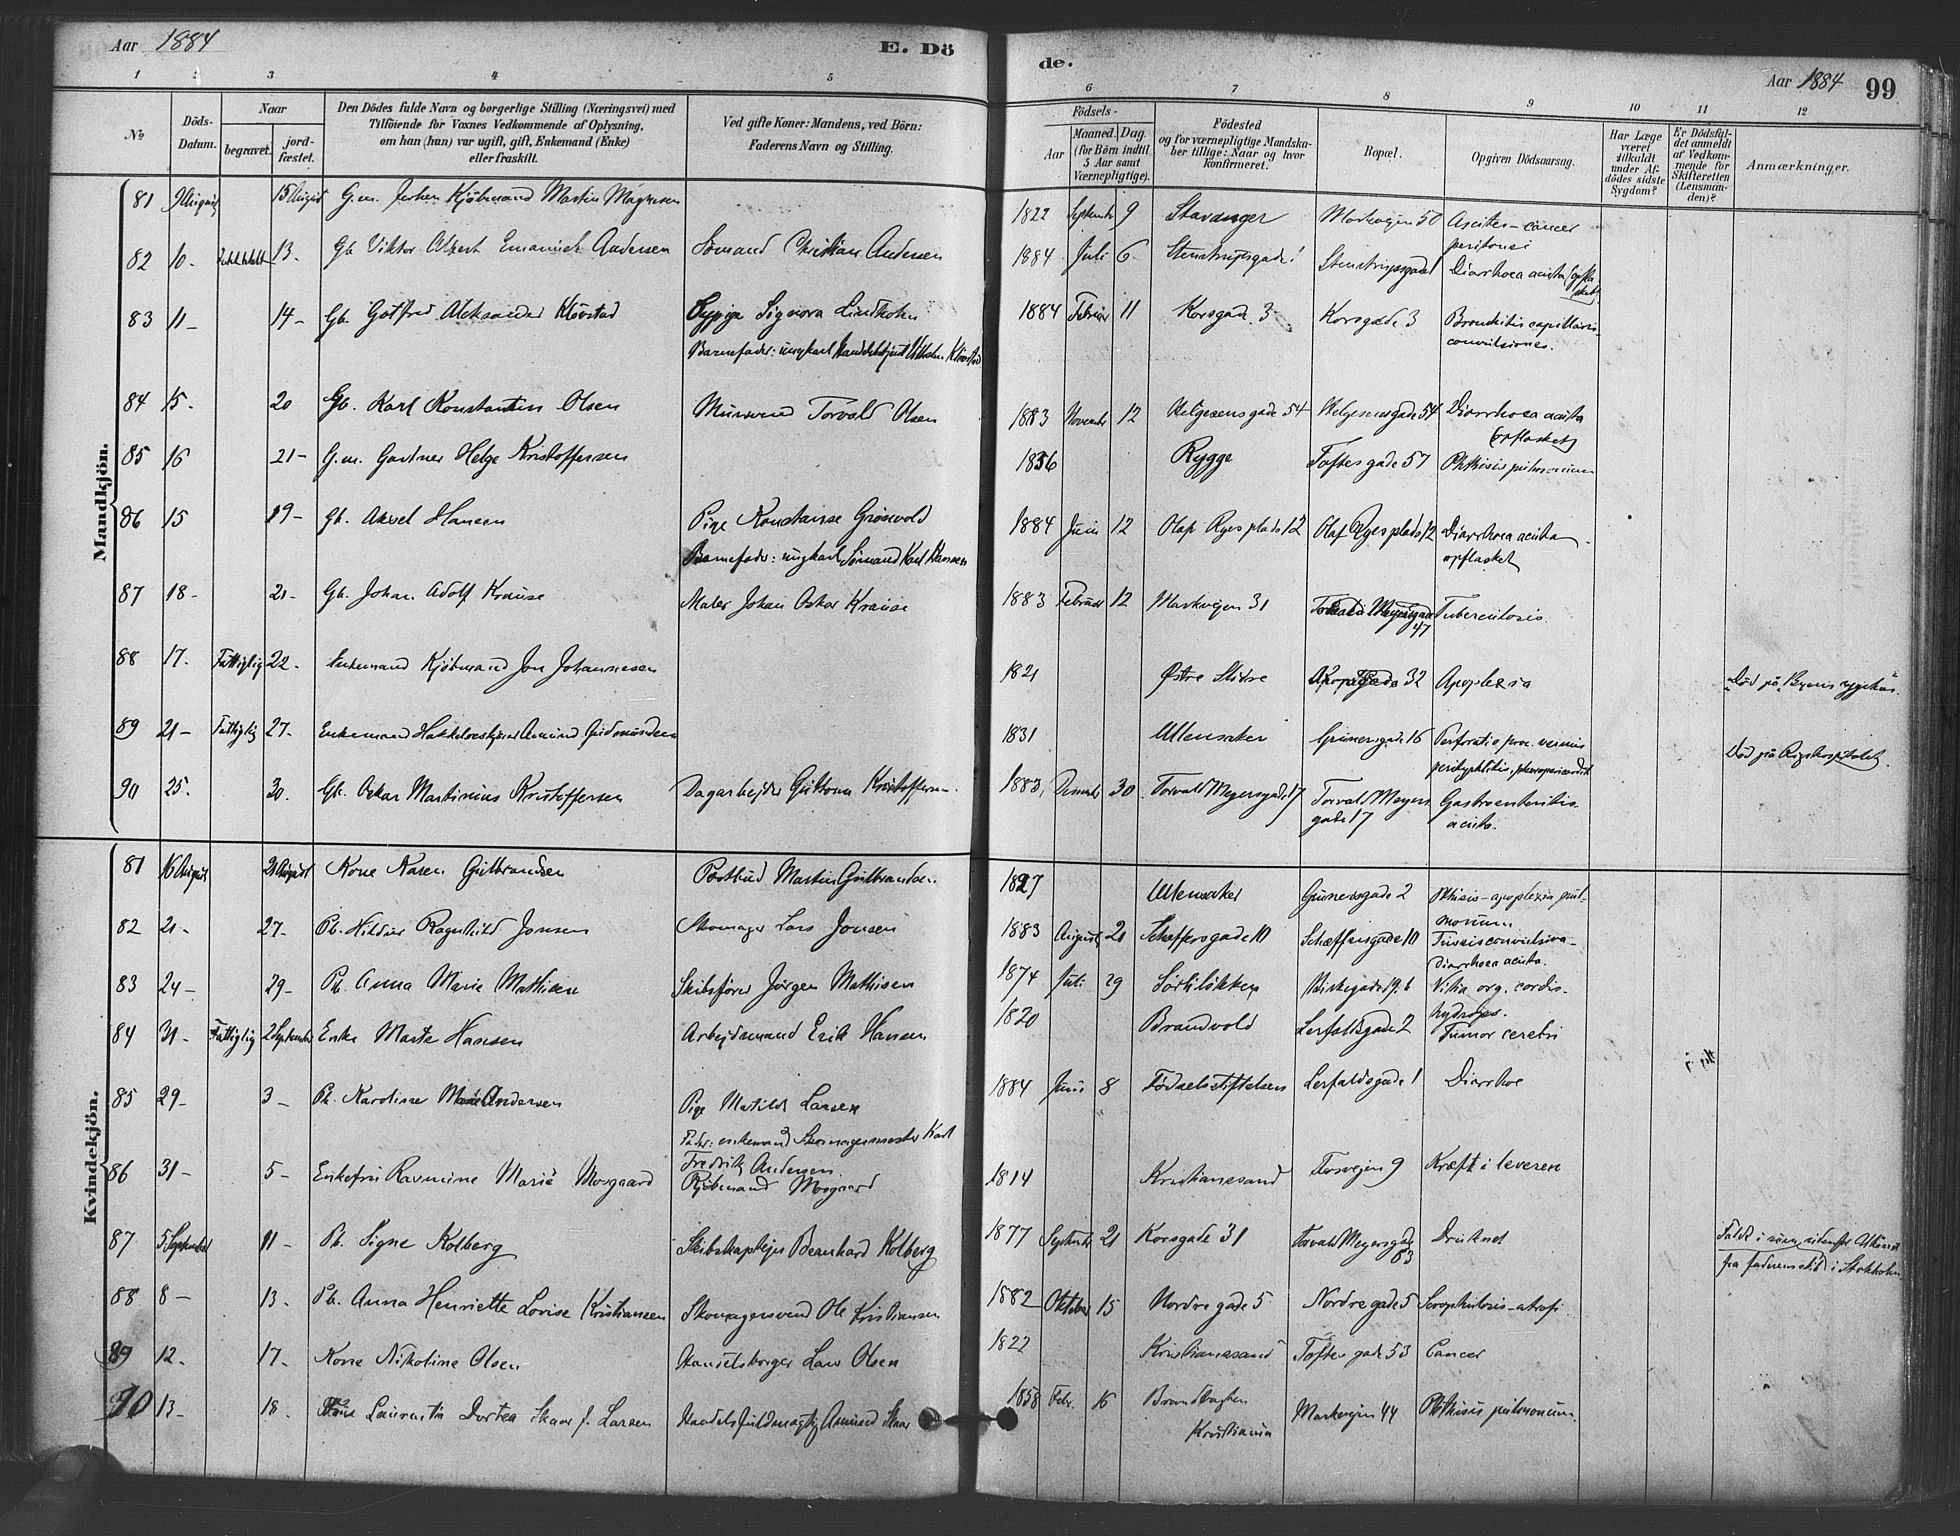 Aar 1884
E. Dö
de.
Aar 1884 99
1 2 3 4 5 6 7 8 9 10 11 12
No
Döds-Datum.
Naar
begravet.
jord-fæstet.
Den Dödes fulde Navn og borgerlige Stilling (Næringsvei) med
Tilföiende for Voxnes Vedkommende af Oplysning,
om han (hun) var ugift, gift, Enkemand (Enke)
eller fraskilt.
Ved gifte Koner: Mandens, ved Börn:
Faderens Navn og Stilling.
Födsels-
Aar
Maaned. Dag.
(for Börn indtil
5 Aar samt
Værnepligtige).
Födested
og for værnepligtige Mandska-
ber tillige: Naar og hvor
konfirmeret.
Bopæl.
Opgiven Dödsaarsag.
Har Læge
været
tilkaldt
under Af-
dödes sidste
Sygdom?
Er Dödsfal-
det anmeldt
af Vedkom-
mende for
Skifteretten
(Lensman-
den)?
Anmærkninger.
Mandkjön.
81 9 August 15 August G.m. Kjöbmand Martin Magnesen 1822 September 9 Stavanger Markvejen 50 Ascites - cancer
peritonei
82 10- 13- Gb. Viktor Albert Emanuel Andersen Sömand Christian Andersen 1884 Juli 6 Stenstrupsgade 1 Stenstrupsgade 1 Diarrhoea acuta (opfla
sket)
83 11- 14- Gb. Gotfred Aleksander Klövstad Pige Signora Lindholm 1884 Februar 11 Korsgade 3 Korsgade 3 Bronkitis capillaris-
convulsiones.
Barnefader: ungkarl Handelsbetjent Vilhelm Klövstad
84 15- 20 Gb. Karl Konstantin Olsen Mursvend Torvald Olsen 1883 November 12 Helgesensgade 54 Helgesensgade 54 Diarrhoea acuta
(opflasket)
85 16 21- G.m. Gartner Helge Kristoffersen 1836 Rygge Toftesgade 57 Phthisis pulmonum
86 15 19- Gb. Aksel Hansen Pige Konstanse Grösvold 1884 Juni 12 Olaf Ryes plads 12 Olaf Ryes plads 12 Diarrhoea acuta-
opflasket
Barnefader: ungkarl Sömand Karl Hansen
87 18- 21- Gb. Johan Adolf Krause Maler Johan Oskar Krause 1883 Februar 12 Markvejen 31 Torvald Meyersgade
47 Tuberculosis
88 17. Fattiglig 22- Enkemand Kjöbmand Jon Johannesen 1821 Östre Slidre 32 Apoplexia Död på "Byens sygehus"
89 21- Fattiglig 27- Enkemand Amund Gudmundsen 1831 Ullensaker Grünersgade 16 Perforatio proc. vermis
perityphlitis, Död på Rigshospitalet.
90 25. 30. Gb. Oskar Martinius Kristoffersen Dagarbejder Guttorm Kristoffersen 1883. Desember 30 Torvald Meyersgade 17 Torvald Meyers
gade 17 Gastroenteritis
acuta.
Kvindekjön.
81 16 August 21 August Kone Karen Gulbrandsen Postbud Martin Gulbrandsen 1827 Ullensaker Grünersgade 2 Phthisis - apoplexia pul-
monum
82 21- 27- Pb. Hildur Ragnhild Jonsen Skomager Lars Jonsen 1883 August 21 Schæffersgade 10 Schæffersgade 10 Tussis convulsiva-
diarrhoea acuta.
83 24- 29- Pb. Anna Marie Mathisen Skibsförer Jörgen Mathisen 1874 Juli 29 Sörlilökken Birkegade 19.b Vitia org. cordis-
hydrops.
84 31- Fattiglig 2 September Enke Marte Hansen Arbejdsmand Erik Hansen 1820 Brandvold Lerfaldsgade 2 Tumor cerebri
85 29- 3- Pb. Karoline Marie Andersen Pige Matilde Larsen 1884 Juni 8 Födselsstiftelsen Lerfaldsgade 1 Diarrhoe
Fader: enkemand Skomagermester Karl
Fredrik Andersen.
86 31- 5- Enkefru Rasmine Marie Mosgaard Kjöbmand Mosgaard 1814 Kristianssand Fossvejen 9 Kræft i leveren
87 5 September 11- Pb. Signe Kolberg Skibskaptejn Bernhard Kolberg 1877 September 21 Korsgade 31 Torvald Meyersgade
53 Druknet
Faldt i söen
fra faderens skib i Stokholm
88 8- 13. Pb. Anna Henriette Lovise Kristiansen Skomagersvend Ole Kristiansen 1882 Oktober 15 Nordre gade 5 Nordre gade 5 Scrophulosis - atrofi
89 12. 17. Kone Nikoline Olsen Handelsborger Lars Olsen 1822 Kristianssand Toftes gade 53 Cancer
90 13- 18. Kone Laurentia Dortea Skaar f. Larsen Handelsfuldmægtig Asmund Skaar 1858 Febr. 16 Brandvagten
Kristiania Markvejen 44 Phthisis pulmonum.